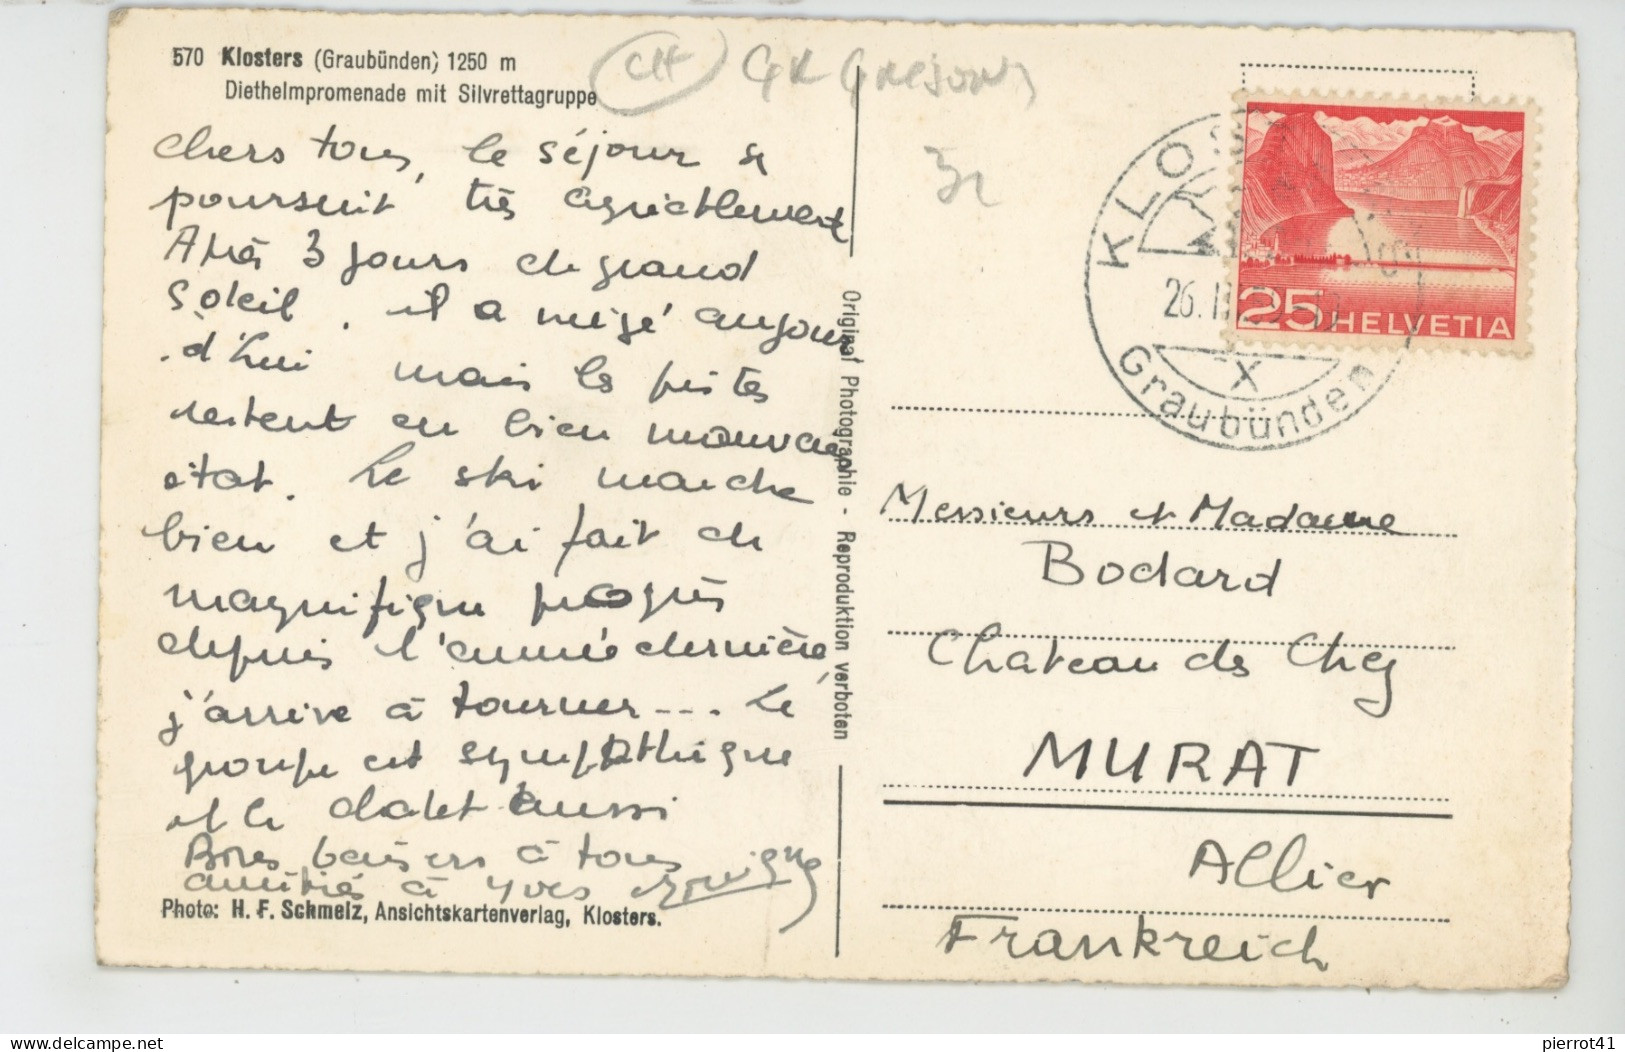 570 Klosters (Graubünden) 1250 m
Diethelmpromenade mit Silvrettagruppe
CH GR Grisons
chers tous, le séjour se
poursuit très agréablement
Après 3 jours de grand
soleil, il a neigé aujour
d'hui mais les pistes
restent en bien mauvais
état. Le ski marche
bien et j'ai fait de
magnifique progrès
depuis l'année dernière,
j'arrive à tourner--- Le
groupe est sympathique
et le chalet aussi
Bons baisers à tous
amitiés à Yves
Photo: H. F. Schmelz, Ansichtskartenverlag, Klosters.
Original Photographie - Reproduktion verboten
KLOSTERS
26.II.
X
Graubünden
25 HELVETIA
Messieurs et Madame
Bodard
Chateau de Chey
MURAT
Allier
Frankreich
pierrot41